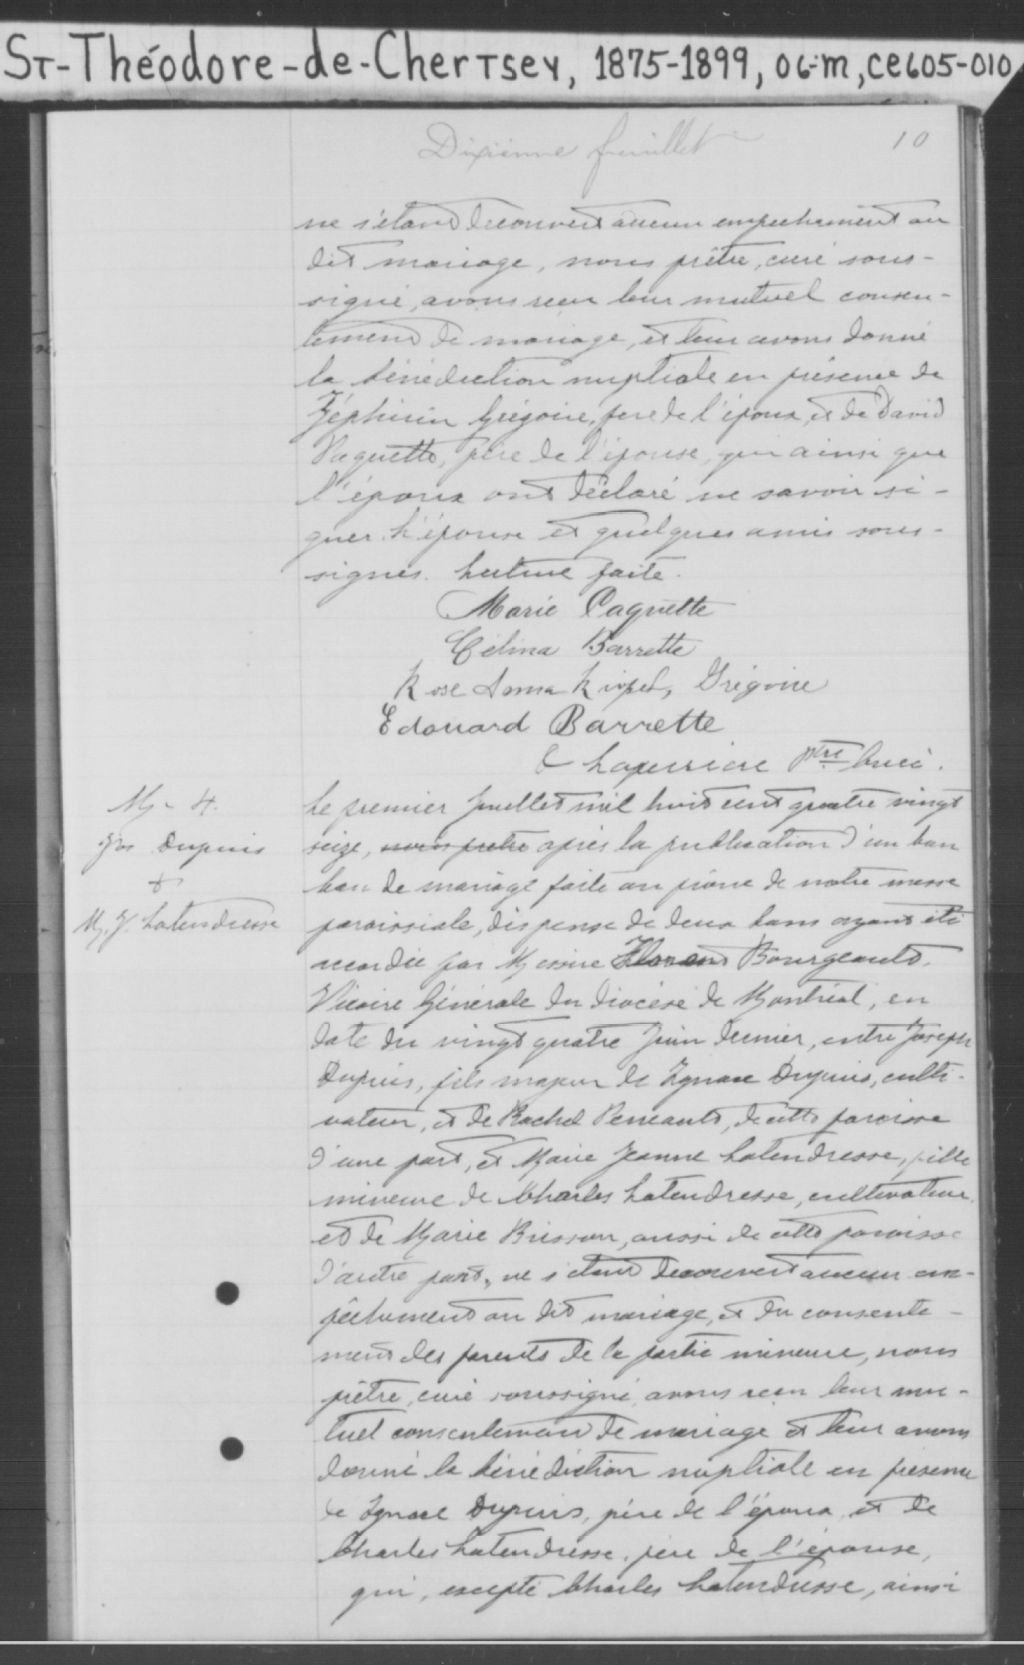 ST-Théodore-de-Chertsey, 1875-1899, 06-m, CE605-010
Dixième feuillet 10
ne s'étant découvert aucun empechement au
dit mariage, nous prêtre, curé sous-
signé, avons reçu leur mutuel consen-
tement de mariage, et leur avons donné
la bénédiction nuptiale en présence de
Zéphirin Grégoire, père de l'époux, et de David
Paquette, père de l'épouse, qui ainsi que
l'époux ont déclaré ne savoir si-
gner. L'épouse et quelques amis sous-
signés. Lecture faite.
Marie Paquette
Célina Barrette
Rose Anna Rivet, Grégoire
Edouard Barrette
Laferrière ptre Curé.
M - 4.
Jos Dupuis
&
M. J. Latendresse
Le premier Juillet mil huit cent quatre vingt
seize, nous prêtre après la publication d'un ban
ban de mariage faite au prône de notre messe
paroissiale, dispense de deux bans ayant été
accordée par Messire Florent Bourgeault,
Vicaire Générale du diocèse de Montréal, en
date du vingt quatre Juin dernier, entre Joseph
Dupuis, fils majeur de Ignace Dupuis, culti-
vateur, et de Rachel Perreault, de cette paroisse
d'une part, et Marie Jeanne Latendresse, fille
mineure de Charles Latendresse, cultivateur,
et de Marie Brisson, aussi de cette paroisse
d'autre part, ne s'étant découvert aucun em-
pêchement au dit mariage, et du consente-
ment des parents de la partie mineure, nous
prêtre, curé soussigné, avons reçu leur mu-
tuel consentement de mariage et leur avons
donné la bénédiction nuptiale en présence
de Ignace Dupuis, père de l'époux, et de
Charles Latendresse, père de l'épouse,
qui, excepté Charles Latendresse, ainsi